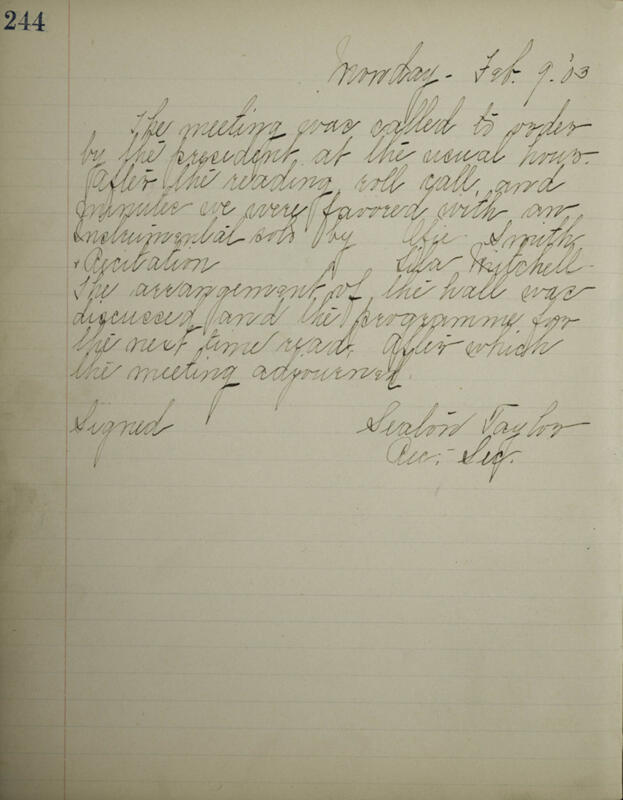 244
Monday - Feb. 9. '03
The meeting was called to order
by the president at the usual hour.
After the reading, roll call, and
minutes we were favored with an
Instrumental solo by Smith
+ Recitation " Lila Mitchell.
The arrangement of the hall was
discussed and the programme for
the next time read. After which
the meeting adjourned.
Signed Taylor
Rec. Sec.